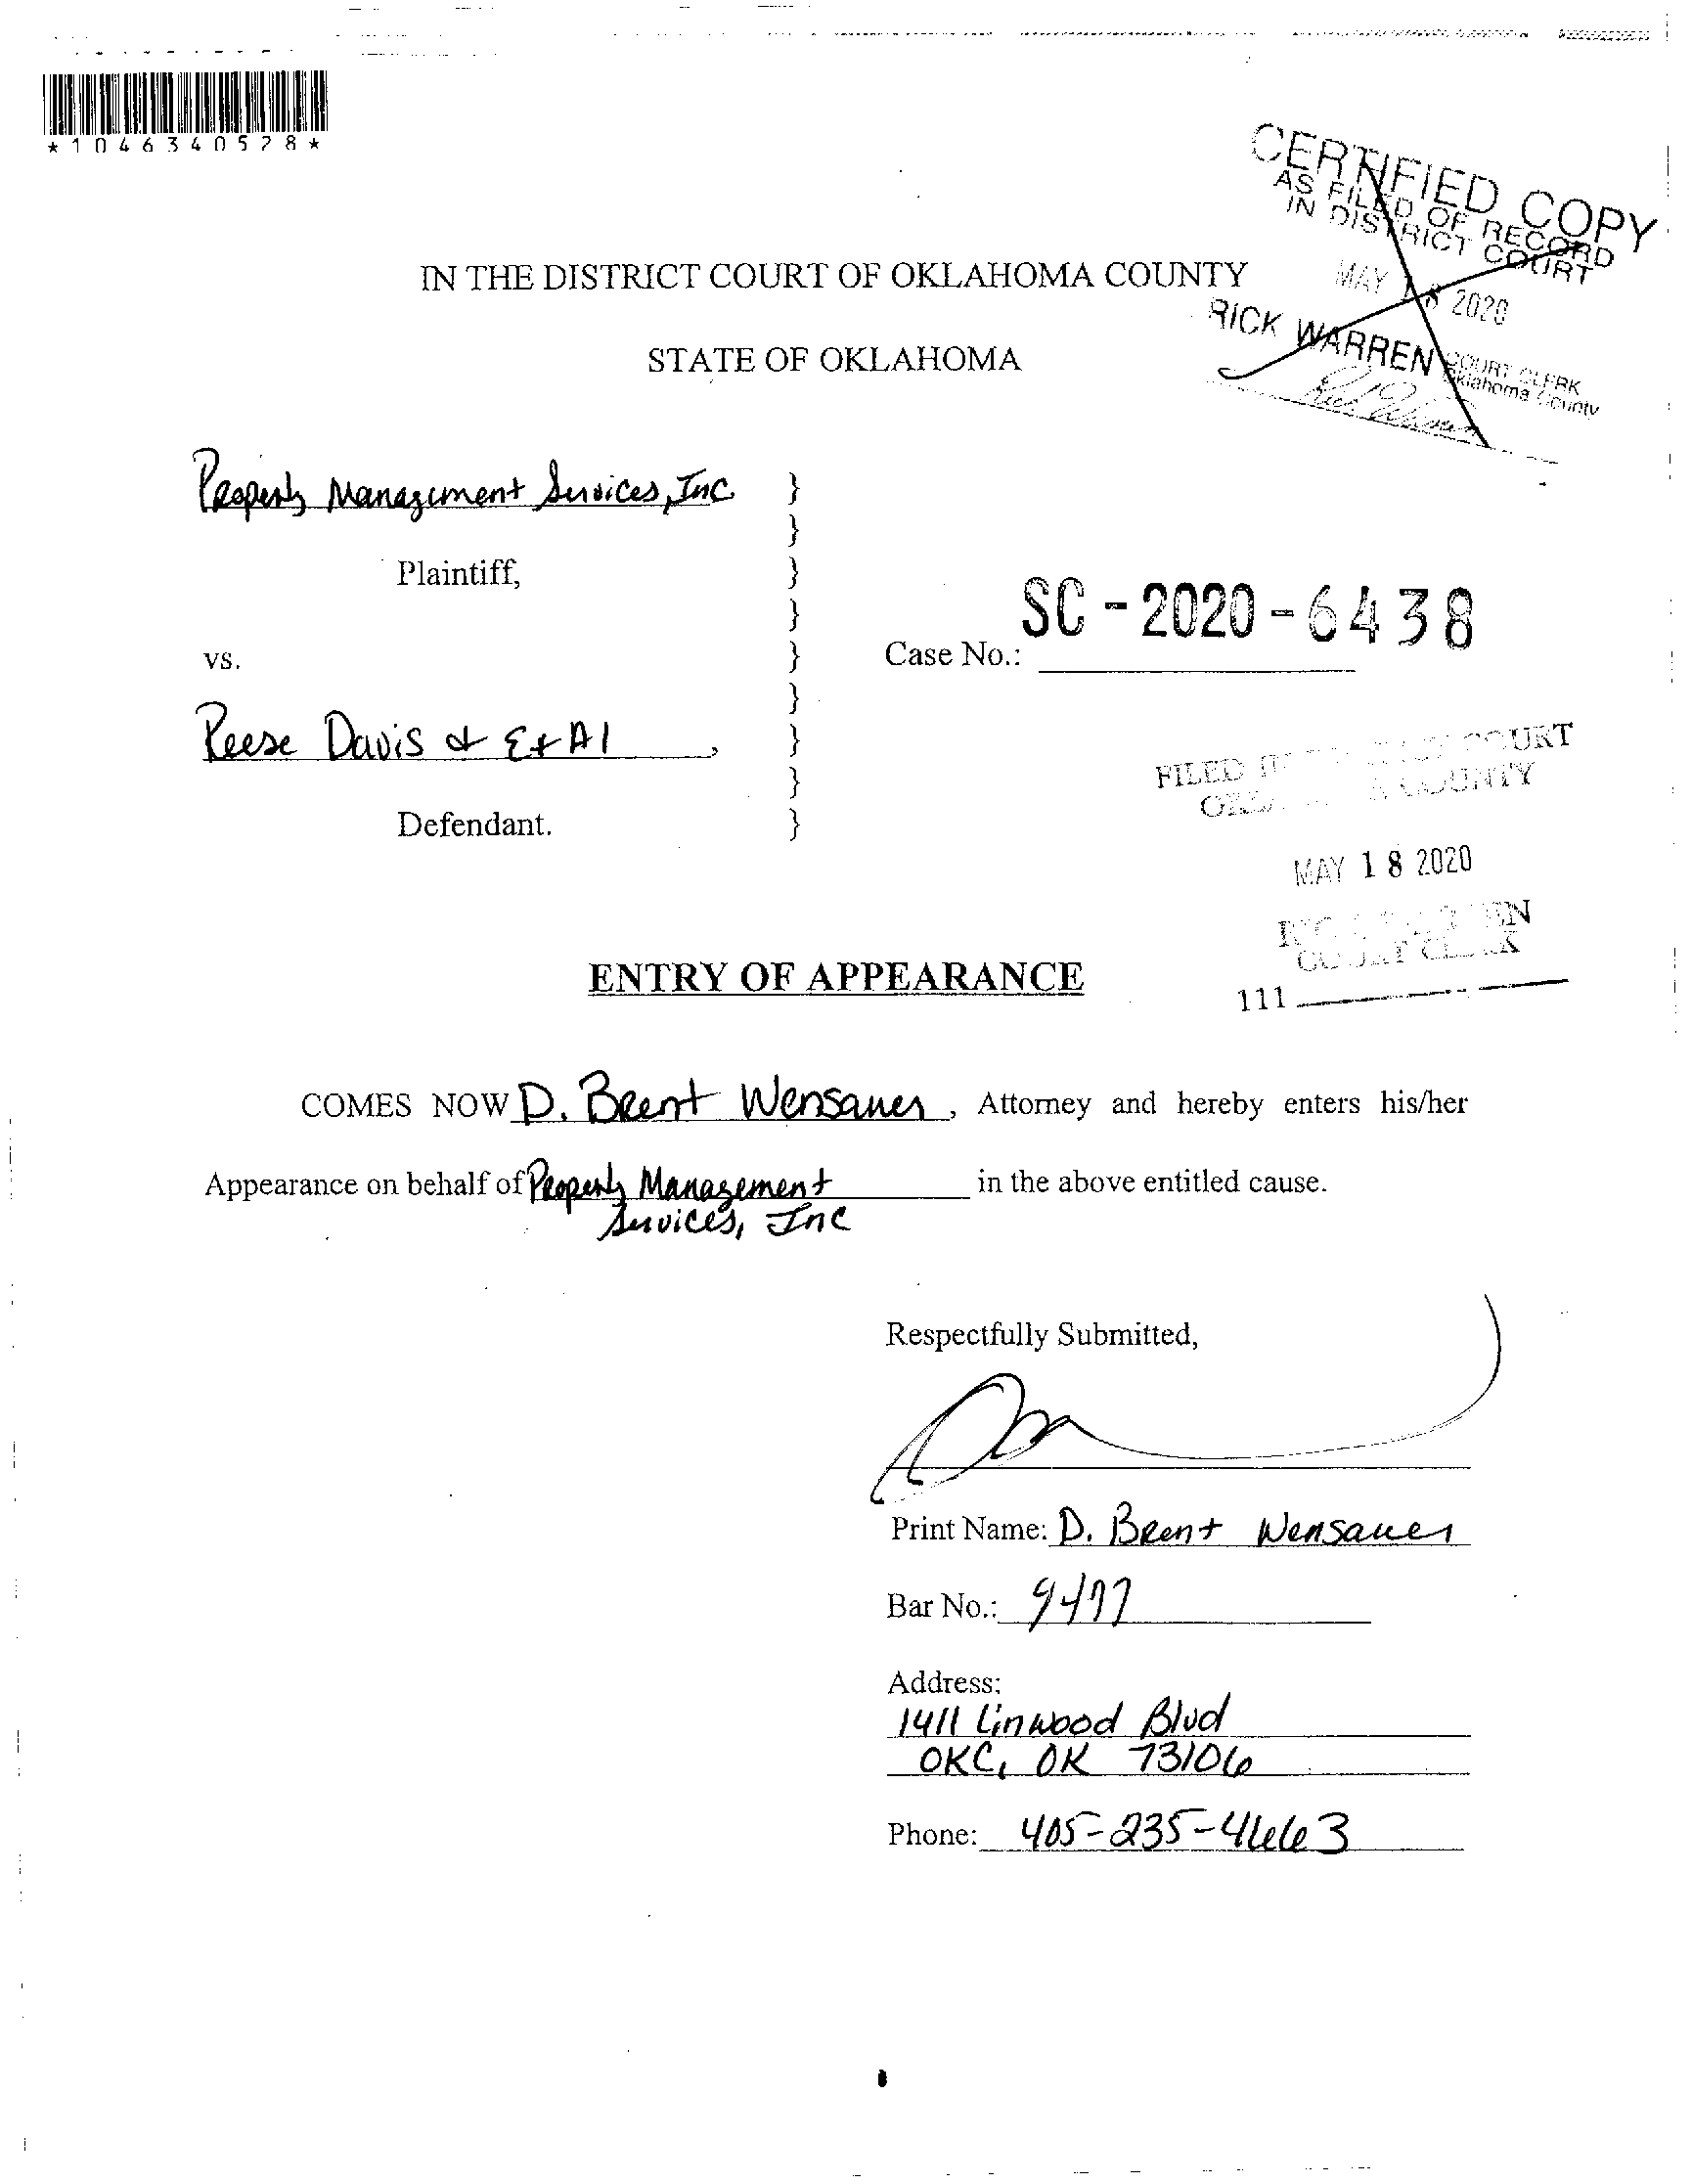 *1046340528*
CERTIFIED COPY
AS FILED OF RECORD
IN DISTRICT COURT
MAY 18 2020
RICK WARREN COURT CLERK
Oklahoma County
IN THE DISTRICT COURT OF OKLAHOMA COUNTY
STATE OF OKLAHOMA
Property Management Services, Inc }
}
Plaintiff, }
}
vs. }
}
Reese Davis & Et Al , }
}
Defendant. }
SC-2020-6438
Case No.:
FILED IN COURT
COUNTY
MAY 18 2020
COURT CLERK
111
ENTRY OF APPEARANCE
COMES NOW D. Brent Wensauer, Attorney and hereby enters his/her
Appearance on behalf of Property Management in the above entitled cause.
Services, Inc
Respectfully Submitted,
Print Name: D. Brent Wensauer
Bar No.: 9477
Address:
1411 Linwood Blvd
OKC, OK 73106
Phone: 405-235-4663